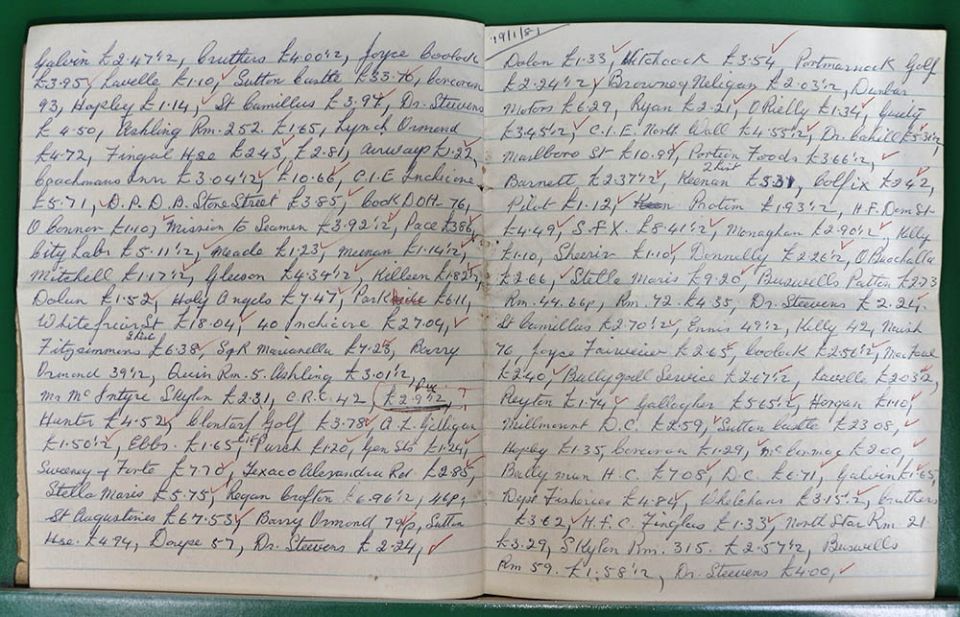 Galvin £2.47½, Cruthers £4.00½, Joyce Coolock
£3.95, Lavelle £1.10, Sutton Castle £33.76, Corcoran
93, Hapley £1.14, St Camillus £3.97, Dr. Steevens
£4.50, Aishling Rm. 252. £1.65, Lynch Ormond
£4.72, Fingal Hse £2.43, £2.81, Airways £1.22,
Coachmans Inn £3.04½, £10.66, C.I.E Inchicore
£5.71, D.P.D.B. Store Street £3.85, Cook DOH 76,
O Connor £1.10, Mission to Seamen £3.92½, Pace £3.86,
City Labs £5.11½, Meade £1.23, Meenan £1.14½,
Mitchell £1.17½, Gleeson £4.34½, Killeen £1.82½
Dolan £1.52, Holy Angels £7.47, Park £6.11,
Whitefriar St £18.04, 40 Inchicore £27.04,
Fitzsimmons £6.38, S&R Marianella £7.28, Barry
Ormond 39½, Quin Rm. 5. Aishling £3.01½,
Mr McIntyre Skylon £2.31, C.R.C. 42 £2.91½, ?
Hunter £4.52, Clontarf Golf £3.78, A.E. Gilligan
£1.50½, Ebbs. £1.65, Purch £1.20, Gen Sts £1.24,
Sweeney & Forte £7.70, Texaco Alexandra Rd. £2.85,
Stella Maris £5.75, Rogan Crofton £6.96½, 46p,
St Augustines £67.53, Barry Ormond 79p, Sutton
Hse. £4.94, Doype 57, Dr. Steevens £2.24,
19/1/81
Dolan £1.33, Hitchcock £3.54, Portmarnock Golf
£2.24½, Browney Neligan £2.03½, Dunbar
Motors £6.29, Ryan £2.21, O Rielly £1.34, Guity
£3.45½, C.I.E. North Wall £4.55½, Dr. Cahill £5.31½,
Marlboro St £10.99, Portion Foods £3.66½,
Barnett £2.37½, Keenan £5.31, Colfix £2.42,
Pilot £1.12, Protim £1.93½, H.F. Dom St
£4.49, S.F.X. £8.41½, Monaghan £2.90½, Kelly
£1.10, Sheerir £1.10, Donnelly £2.26½, O Buachalla
£2.66, Stella Maris £9.20, Buswells Patten £2.23
Rm. 44. 66p, Rm. 72. £4.35, Dr. Steevens £2.24,
St Camillus £2.70½, Ennis 49½, Kelly 42, Naish
76, Joyce Fairview £2.65, Coolock £2.56½,
£2.40, Ballygall Service £2.67½, Lavelle £2.03½,
Peyton £1.74, Gallagher £5.65½, Horgan £1.10,
Millmount D.C. £2.59, Sutton Castle £23.08,
Hapley £1.35, Corcoran £1.29, McCormac £2.00,
Ballymun H.C. £7.05, D.C. £6.71, Galvin £1.65,
Dept Fisheries £4.84, Whelehans £3.15½, Cruthers
£3.62, H.F.C. Finglas £1.33, North Star Rm. 21
£3.29, Skylon Rm. 315. £2.57½, Buswells
Rm 59. £1.58½, Dr. Steevens £4.00,